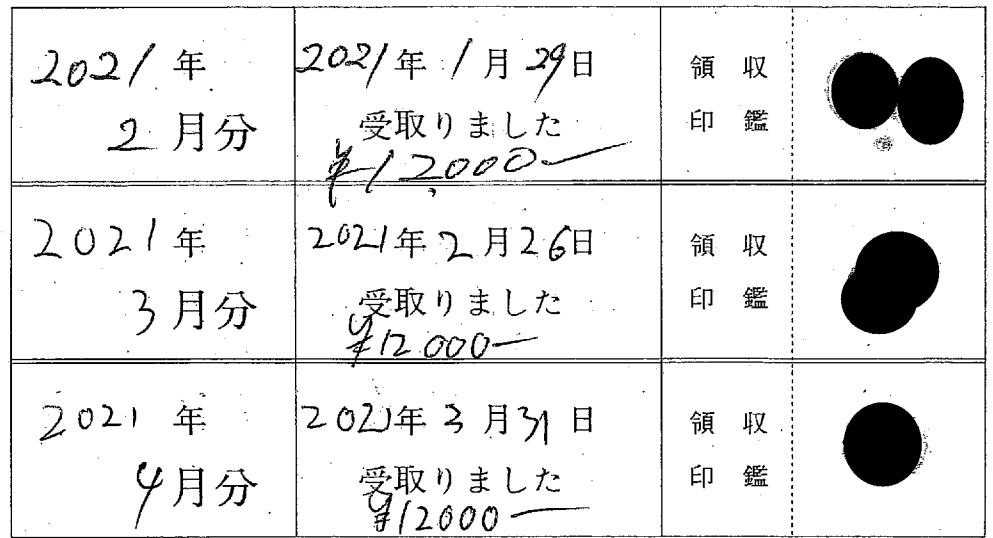 2021年
2月分
2021年1月29日
受取りました
¥12,000-
領収
印鑑
2021年
3月分
2021年2月26日
受取りました
¥12000-
領収
印鑑
2021年
4月分
2021年3月31日
受取りました
¥12000-
領収
印鑑